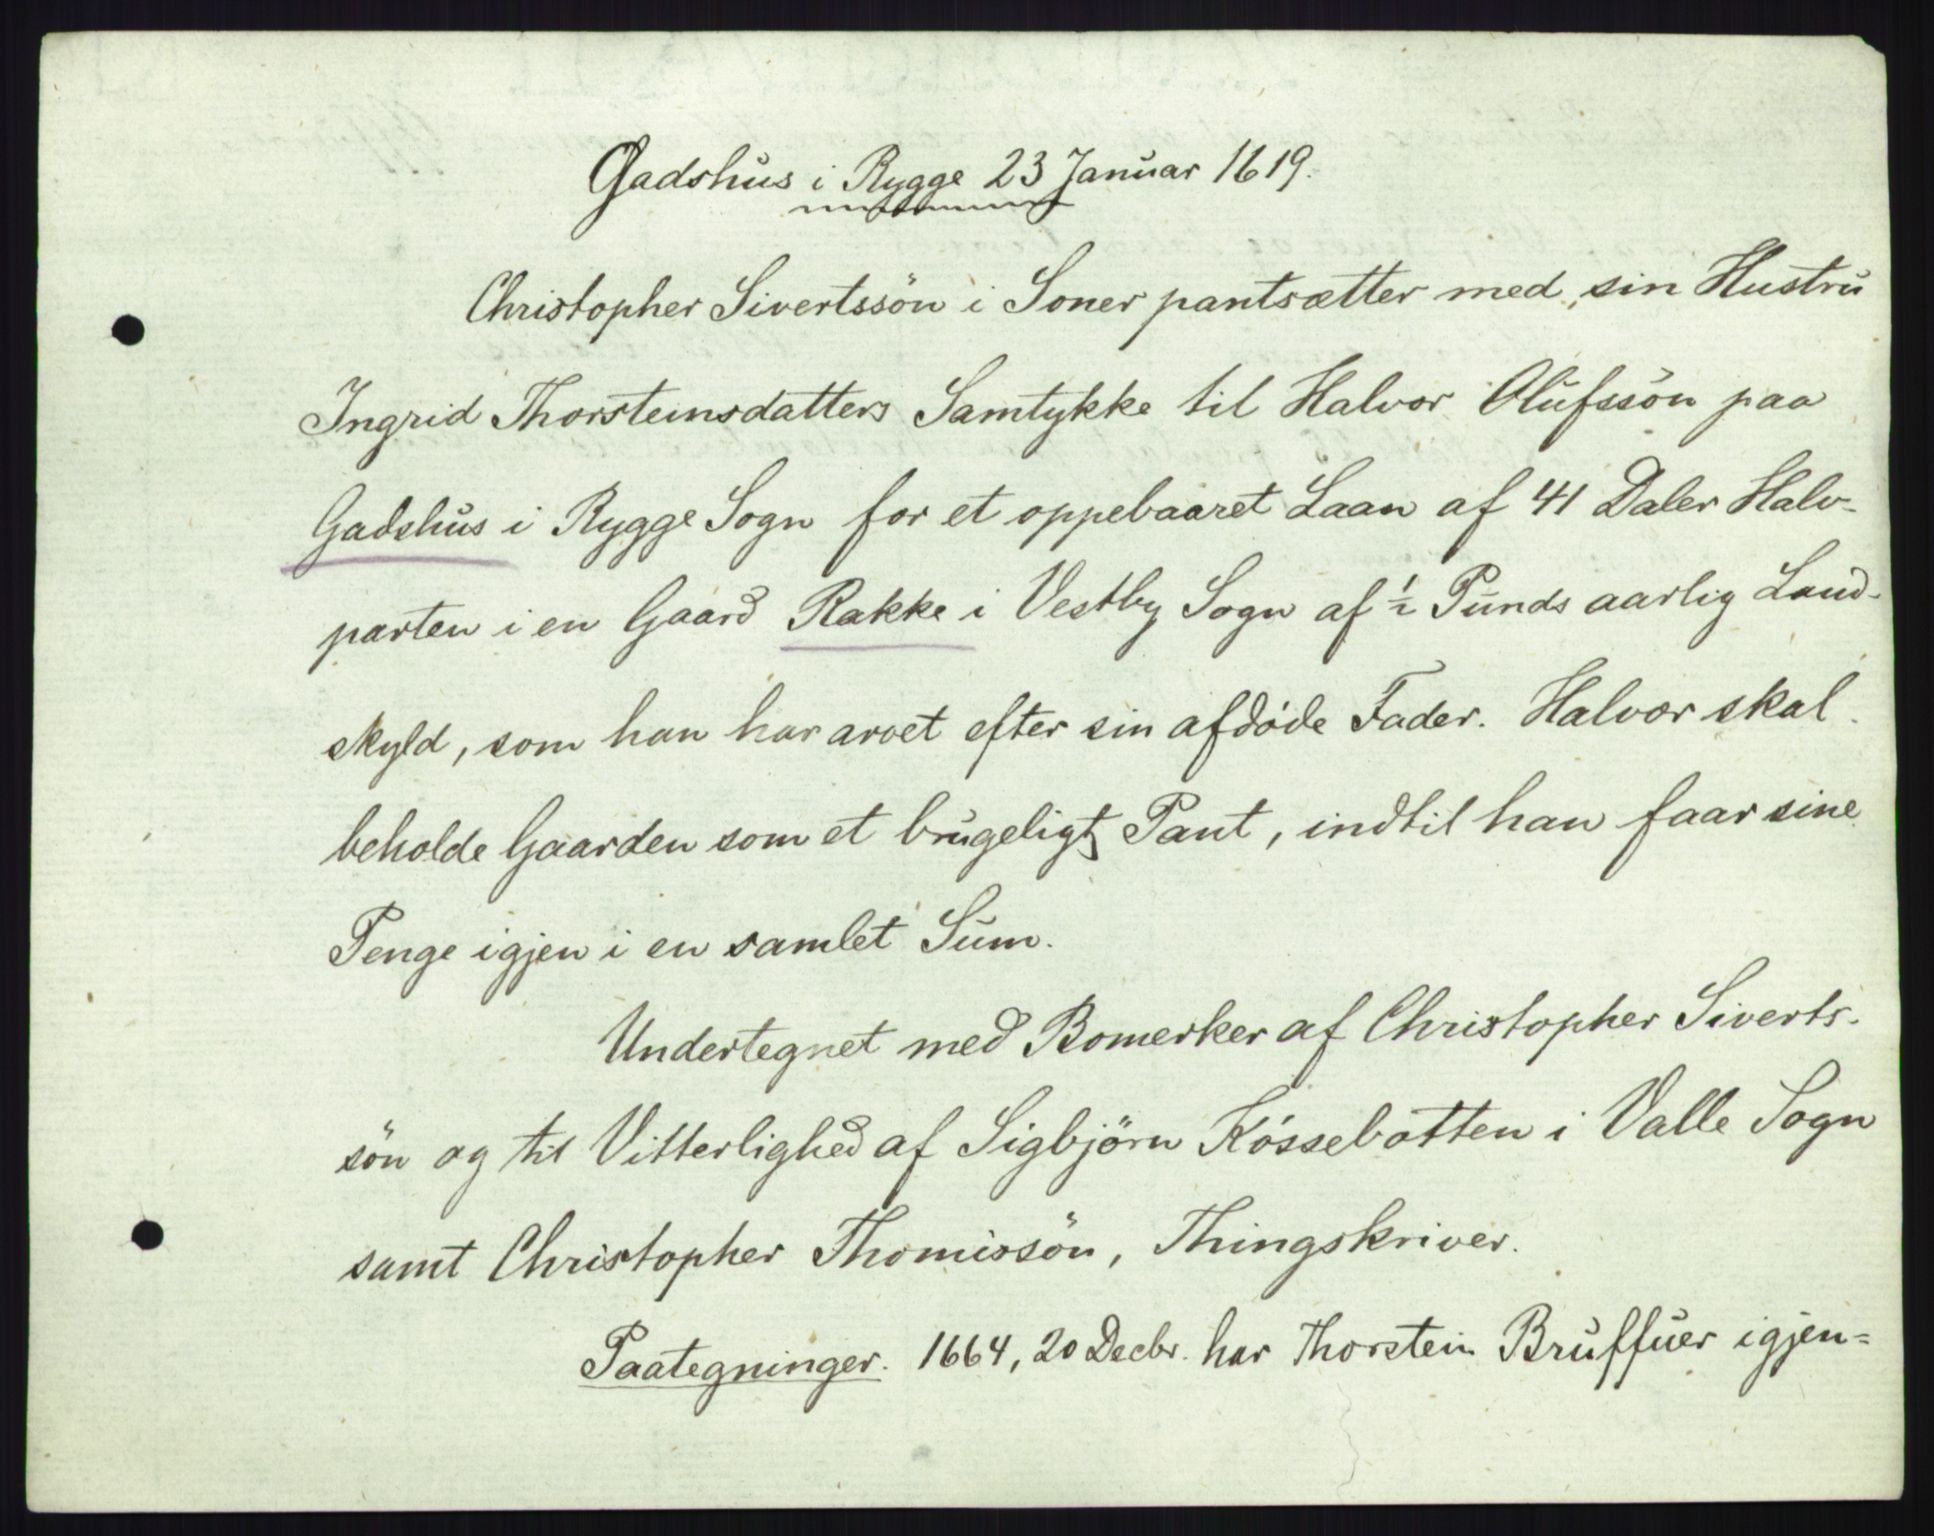 Gadshus i Rygge 23 Januar 1619.
Christopher Sivertssön i Soner pantsætter med sin Hustru
Ingrid Thorsteinsdatters Samtykke til Halvor Olufssön paa
Gadshus i Rygge Sogn for et oppebaaret Laan af 41 Daler Halv-
parten i en Gaard Rakke i Vestby Sogn af ½ Punds aarlig Land-
skyld, som han har arvet efter sin afdøde Fader. Halvor skal
beholde Gaarden som et brugeligt Pant, indtil han faar sine
Penge igjen i en samlet Sum.
Undertegnet med Bomerker af Christopher Siverts-
sön og til Vitterlighed af Sigbjörn Kóssebotten i Valle Sogn
samt Christopher Thomissön, Thingskriver.
Paategninger. 1664, 20 Decbr. har Thorstein Bruffuer igjen=